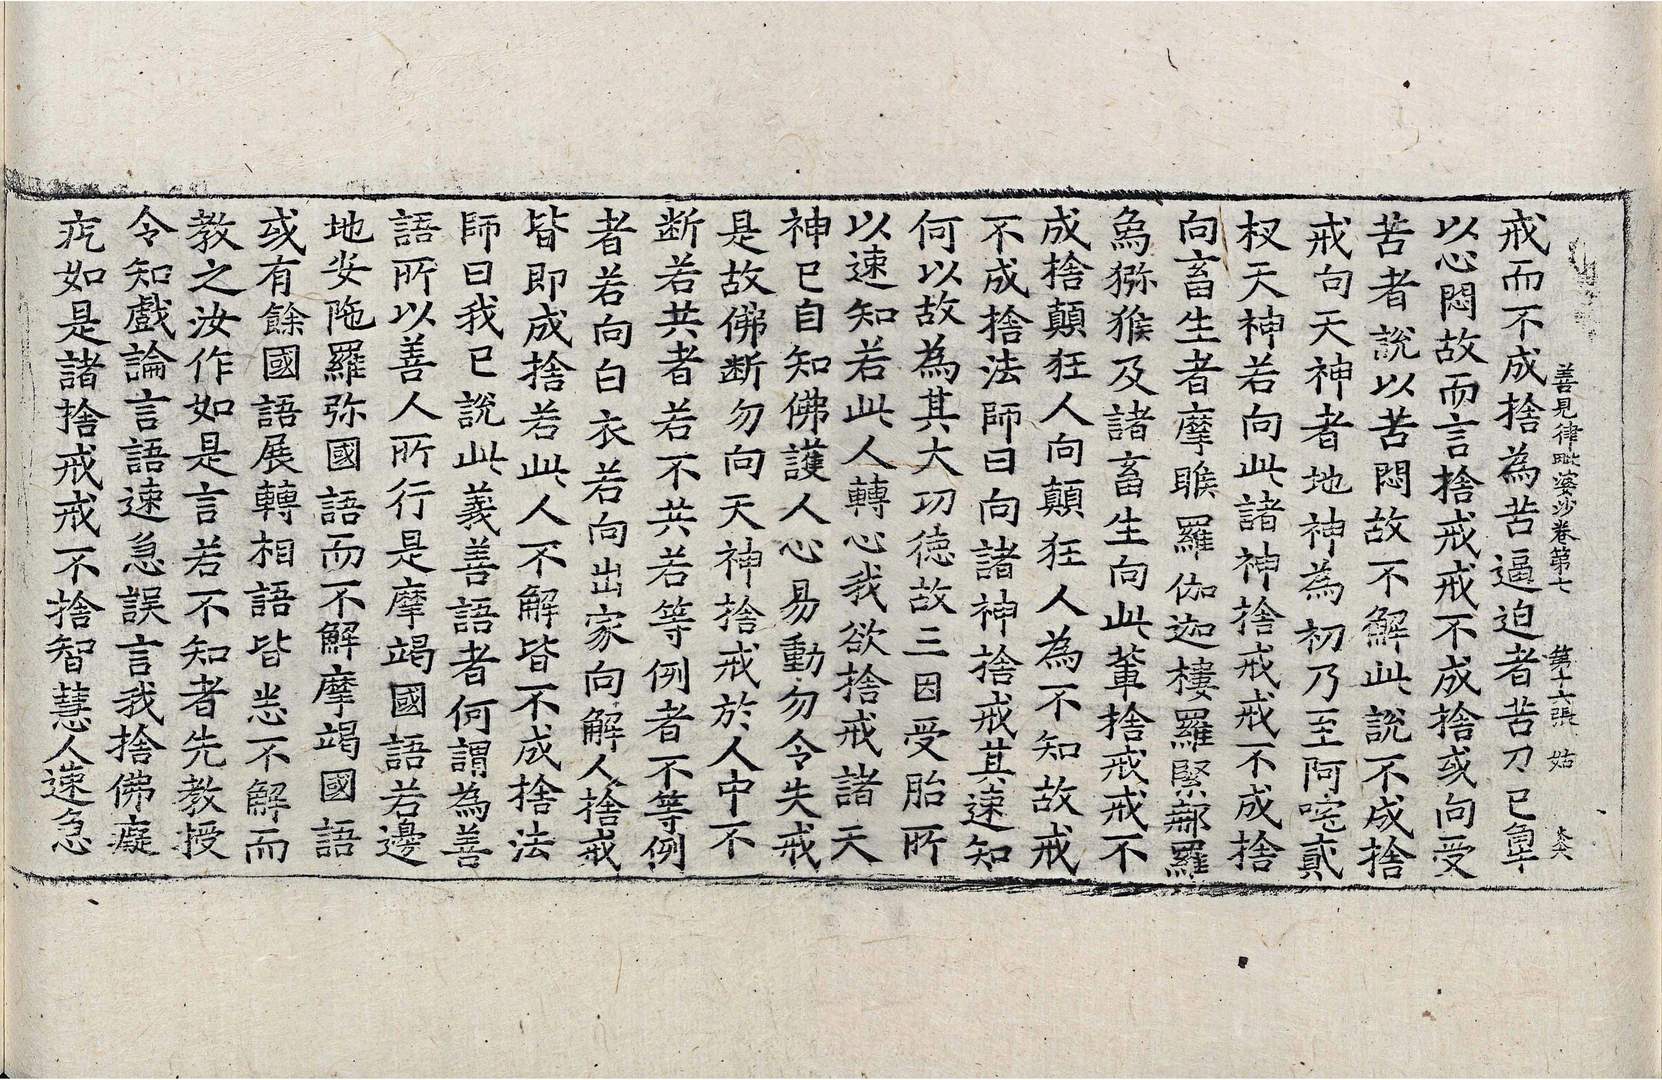 善見律毗婆沙卷第七 第十六張 姑
戒而不成捨為苦逼迫者苦刀已卑
以心悶故而言捨戒戒不成捨或向受
苦者說以苦悶故不解此說不成捨
戒向天神者地神為初乃至阿咤貳
杈天神若向此諸神捨戒戒不成捨
向畜生者摩睺羅伽迦樓羅緊那羅
烏獼猴及諸畜生向此軰捨戒戒不
成捨顛狂人向顛狂人為不知故戒
不成捨法師曰向諸神捨戒其速知
何以故為其大功德故三因受胎所
以速知若此人轉心我欲捨戒諸天
神已自知佛護人心易動勿令失戒
是故佛断勿向天神捨戒於人中不
断若共者若不共若等例者不等例
者若向白衣若向出家向解人捨戒
皆即成捨若此人不解皆不成捨法
師曰我已說此義善語者何謂為善
語所以善人所行是摩竭國語若邊
地安陁羅弥國語而不解摩竭國語
或有餘國語展轉相語皆悉不解而
教之汝作如是言若不知者先教授
令知戲論言語速急誤言我捨佛癡
疣如是諸捨戒戒不捨智慧人速急